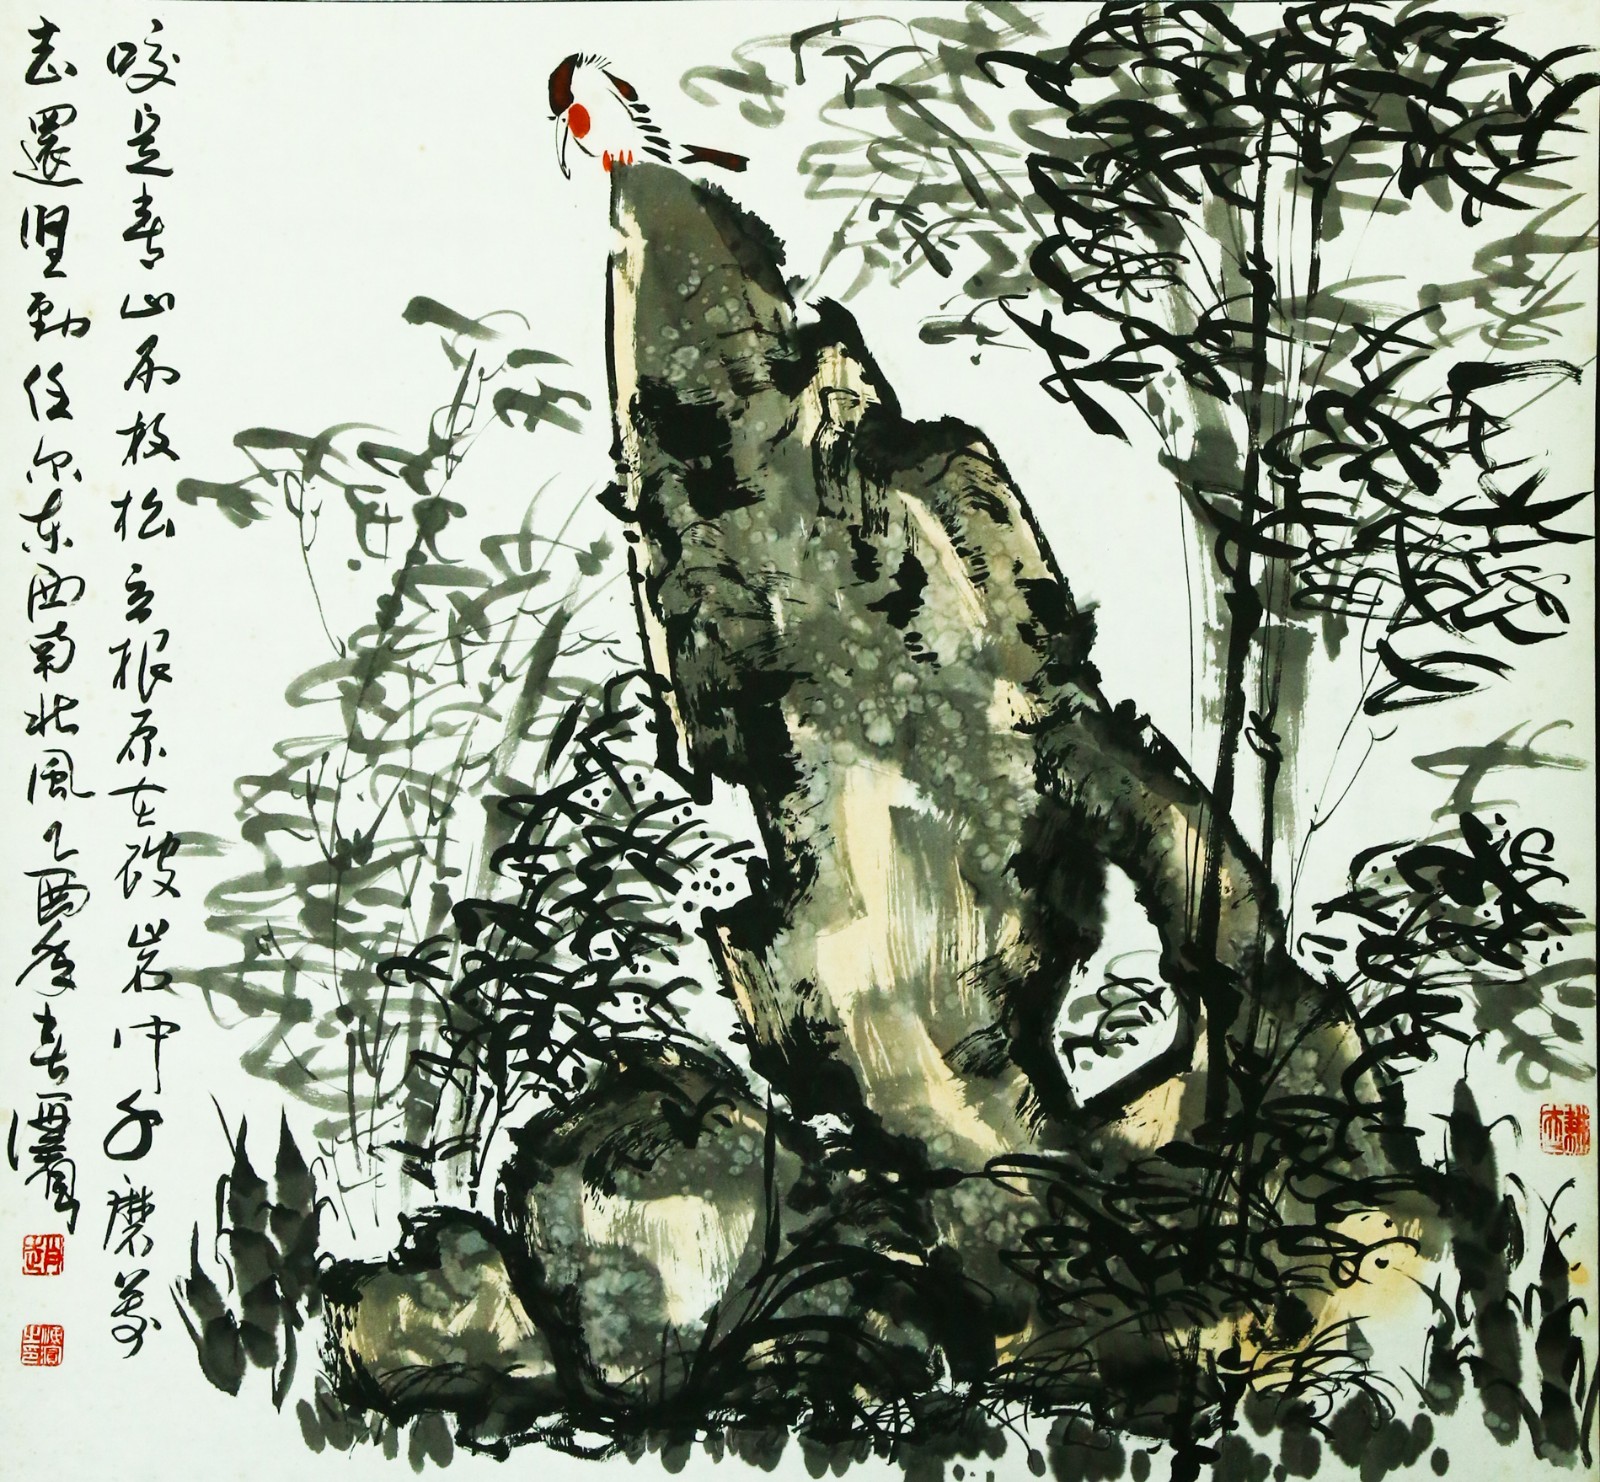 咬定青山不放松立根原在破岩中千磨萬
击還坚勁任尔东西南北風乙酉年春